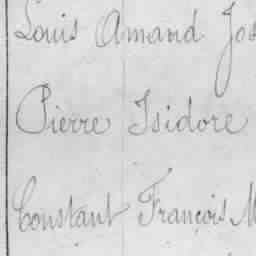 Louis Amand Jos
Pierre Isidore
Constant François M